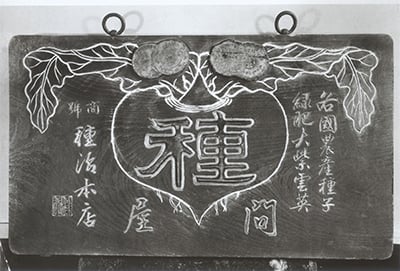 各國農產種子
綠肥大紫雲英
種
問屋
商號
種治本店